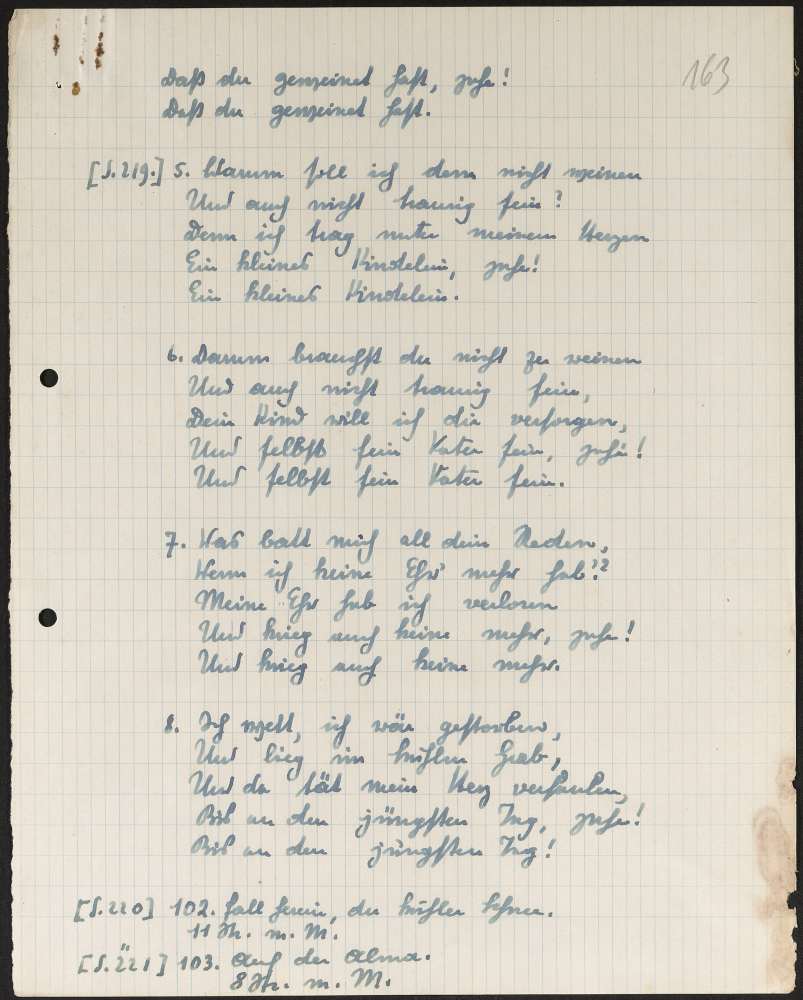 163
Daß du geweinet hast, juhe!
Daß du geweinet hast.
[S. 219.] 5. Warum soll ich denn nicht weinen
Und auch nicht traurig sein?
Denn ich trag unter meinem Herzen
Ein kleines Kindelein, juhe!
Ein kleines Kindelein.
6. Darum brauchst du nicht zu weinen
Und auch nicht traurig sein,
Dein Kind will ich dir versorgen,
Und selbst sein Vater sein, juhe!
Und selbst sein Vater sein.
7. Was batt mich all dein Reden,
Wenn ich keine Ehr' mehr hab'?
Meine Ehr hab ich verloren
Und krieg auch keine mehr, juhe!
Und krieg auch keine mehr.
8. Ich wollt, ich wär gestorben,
Und lieg im kühlen Grab,
Und da tät mein Herz verfaulen,
Bis an den jüngsten Tag, juhe!
Bis an den jüngsten Tag!
[S. 220] 102. Fall herein, du kühler Schnee.
11 Str. m. M.
[S. 221] 103. Auf der Alma.
8 Str. m. M.